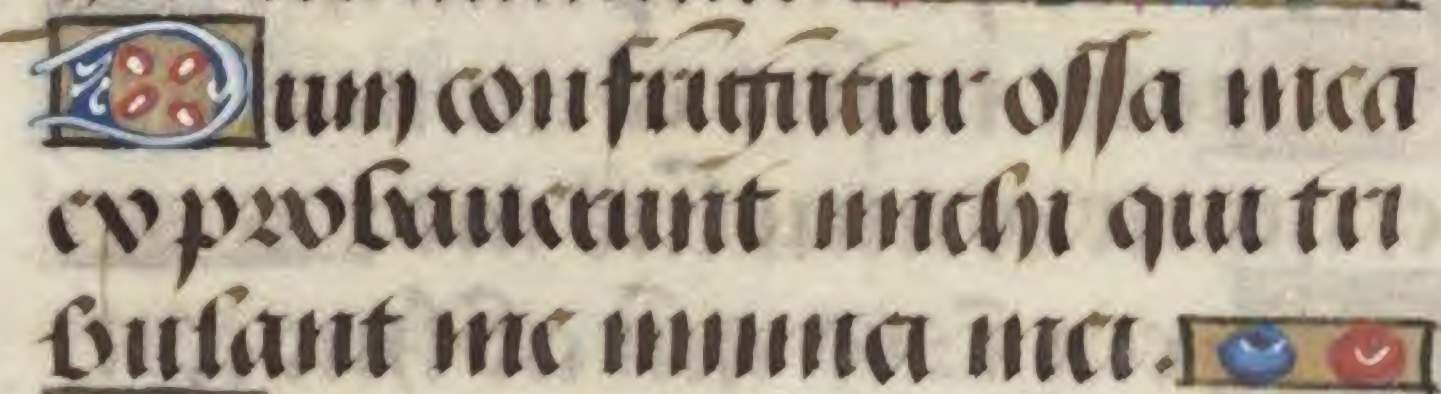 Dum confrīgūtur ossa mea
exprobauerunt michi qui tri
bulant me inimici mei.